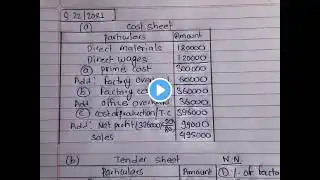 Q 22/2021
(a) Cost sheet
Particulars Amount
Direct materials 180000
Direct wages 120000
(a) prime cost 300000
Add: factory overhead 60000
(b) Factory cost 360000
Add office overhead 36000
(c) cost of production/T.C 396000
Add: Net profit/396000× 99000
sales 495000
(b) Tender sheet N.N.
Particulars Amount ① /. of facto